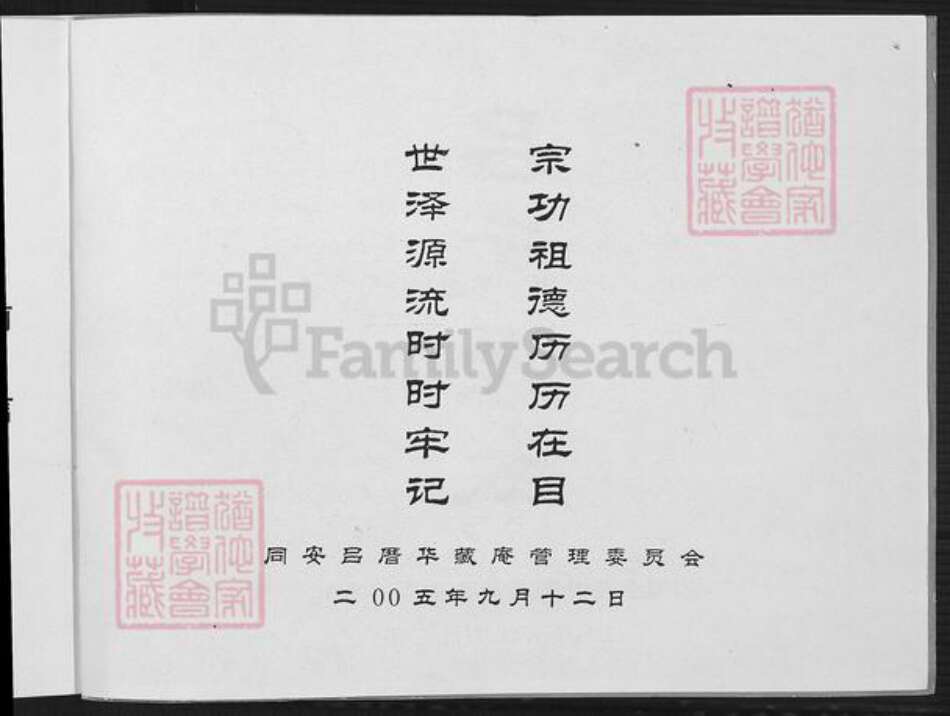 宗功祖德历历在目
世泽源流时时牢记
同安吕厝华藏庵管理委员会
二00五年九月十二日
犹他家谱学会收藏
犹他家谱学会收藏
FamilySearch